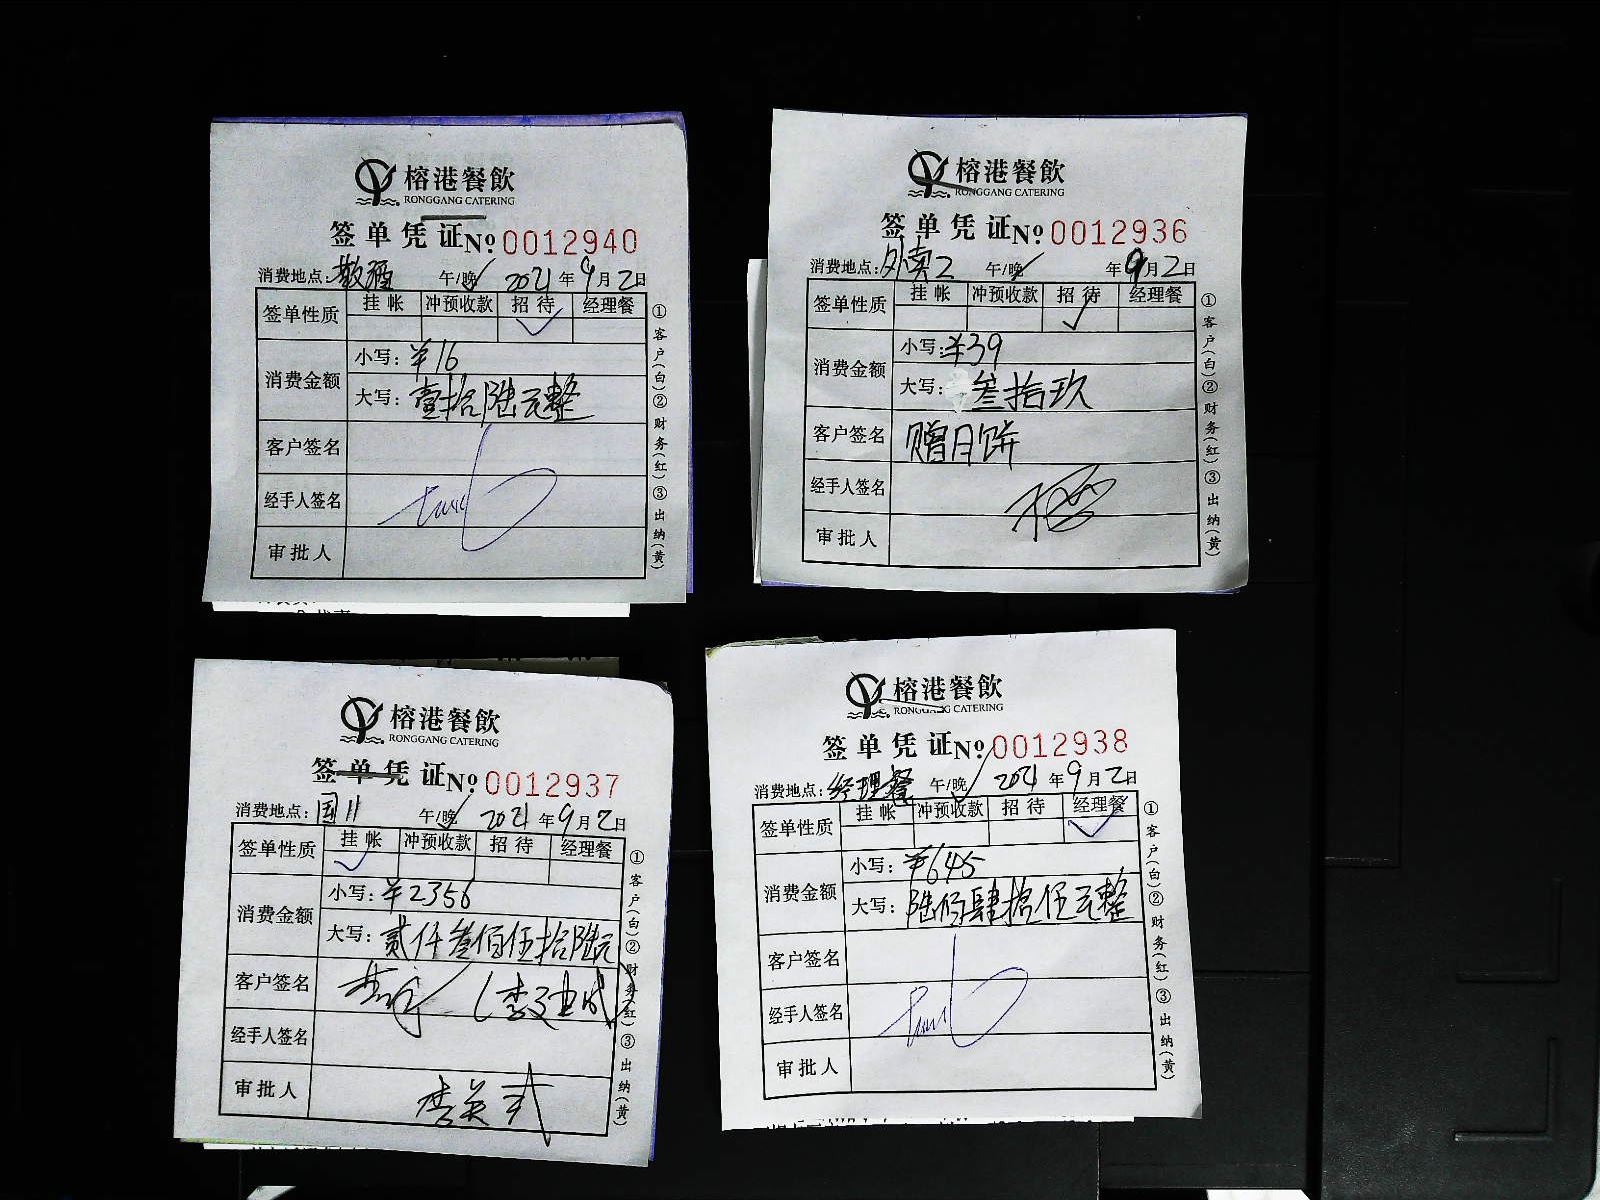 榕港餐飲
RONGGANG CATERING
签单凭证 No 0012940
消费地点：散酒 午/晚 2021年9月2日
签单性质 挂帐 冲预收款 招待 经理餐
消费金额 小写：¥16
大写：壹拾陆元整
客户签名
经手人签名
审批人
①客户(白)②财务(红)③出纳(黄)
榕港餐飲
RONGGANG CATERING
签单凭证 No 0012936
消费地点：外卖2 午/晚 年9月2日
签单性质 挂帐 冲预收款 招待 经理餐
消费金额 小写：¥39
大写：叁拾玖
客户签名 赠月饼
经手人签名
审批人
①客户(白)②财务(红)③出纳(黄)
榕港餐飲
RONGGANG CATERING
签单凭证 No 0012937
消费地点：国11 午/晚 2021年9月2日
签单性质 挂帐 冲预收款 招待 经理餐
消费金额 小写：¥2356
大写：贰仟叁佰伍拾陆元
客户签名
经手人签名
审批人
①客户(白)②财务(红)③出纳(黄)
榕港餐飲
RONGGANG CATERING
签单凭证 No 0012938
消费地点：经理餐 午/晚 2021年9月2日
签单性质 挂帐 冲预收款 招待 经理餐
消费金额 小写：¥645
大写：陆佰肆拾伍元整
客户签名
经手人签名
审批人
①客户(白)②财务(红)③出纳(黄)